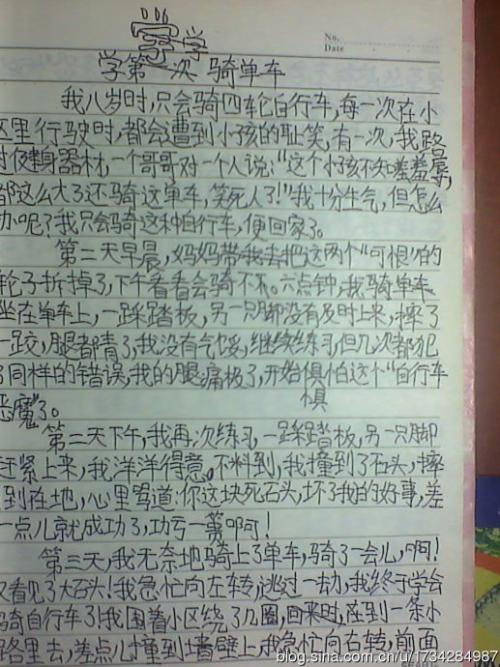 学
No.
Date
学第一次骑单车
我八岁时,只会骑四轮自行车,每一次在小
区里行驶时,都会遭到小孩的耻笑,有一次,我路
过健身器材,一个哥哥对一个人说:"这个小孩不知羞羞辱,
都这么大了还骑这单车,笑死人了!"我十分生气,但怎么
办呢?我只会骑这种自行车,便回家了。
第二天早晨,妈妈带我去把这两个"可恨"的
轮子拆掉了,下午看看会骑不。六点钟,我骑单车、
坐在单车上,一踩踏板,另一只脚没有及时上来,摔了
一跤,腿都青了,我没有气馁,继续练习,但几次都犯
了同样的错误,我的腿痛极了,开始惧怕这个"自行车
惧
恶魔"了。
第二天下午,我再次练习,一踩踏板,另一只脚
赶紧上来,我洋洋得意。不料到,我撞到了石头,摔
到在地,心里骂道:你这块死石头,坏了我的好事,差
一点儿就成功了,功亏一篑啊!
第三天,我无奈地骑上了单车,骑了一会儿,啊!
又看见了大石头!我急忙向左转,逃过一劫,我终于学会
骑自行车了!我围着小区绕了几圈,回来时,在到一条小
路里去,差点儿撞到墙壁上,我急忙向右转,前面
blog.sina.com.cn/u/1734284987